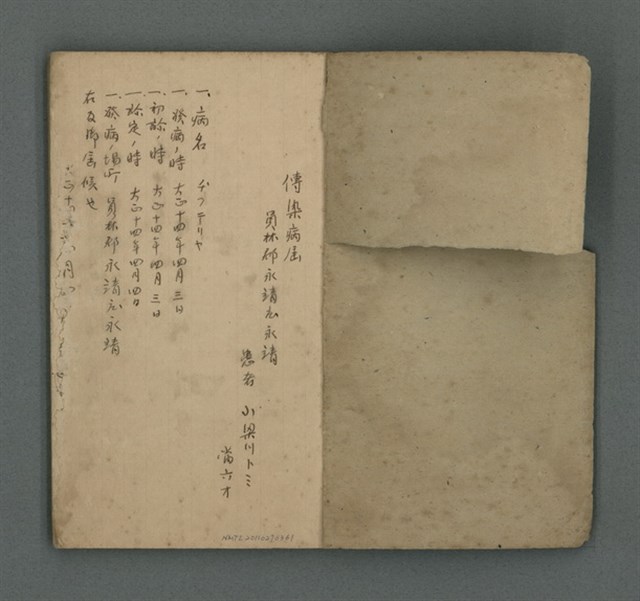 傳染病届
員林郡永靖庄永靖
患者 小梁川トミ
當六才
一、病名 ヂフテリヤ
一、發病ノ時 大正十四年四月三日
一、初診ノ時 大正十四年四月三日
一、診定ノ時 大正十四年四月四日
一、發病ノ場所 員林郡永靖庄永靖
右及御届候也